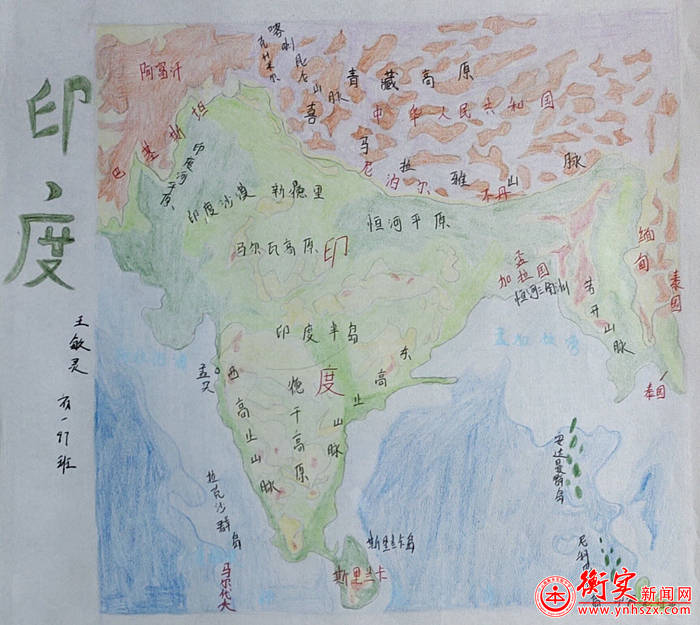 印度
王敏灵
高一97班
阿富汗
喀喇昆仑山脉
克什米尔
青藏高原
中华人民共和国
喜马拉雅山脉
巴基斯坦
尼泊尔
不丹
印度河平原
印度沙漠
新德里
恒河平原
马尔瓦高原
印度
孟加拉国
恒河三角洲
缅甸
泰国
若开山脉
印度半岛
孟加拉湾
孟买
西高止山脉
德干高原
东高止山脉
泰国
安达曼群岛
拉克沙群岛
马尔代夫
斯里兰卡岛
斯里兰卡
衡实新闻网
www.ynhszx.com